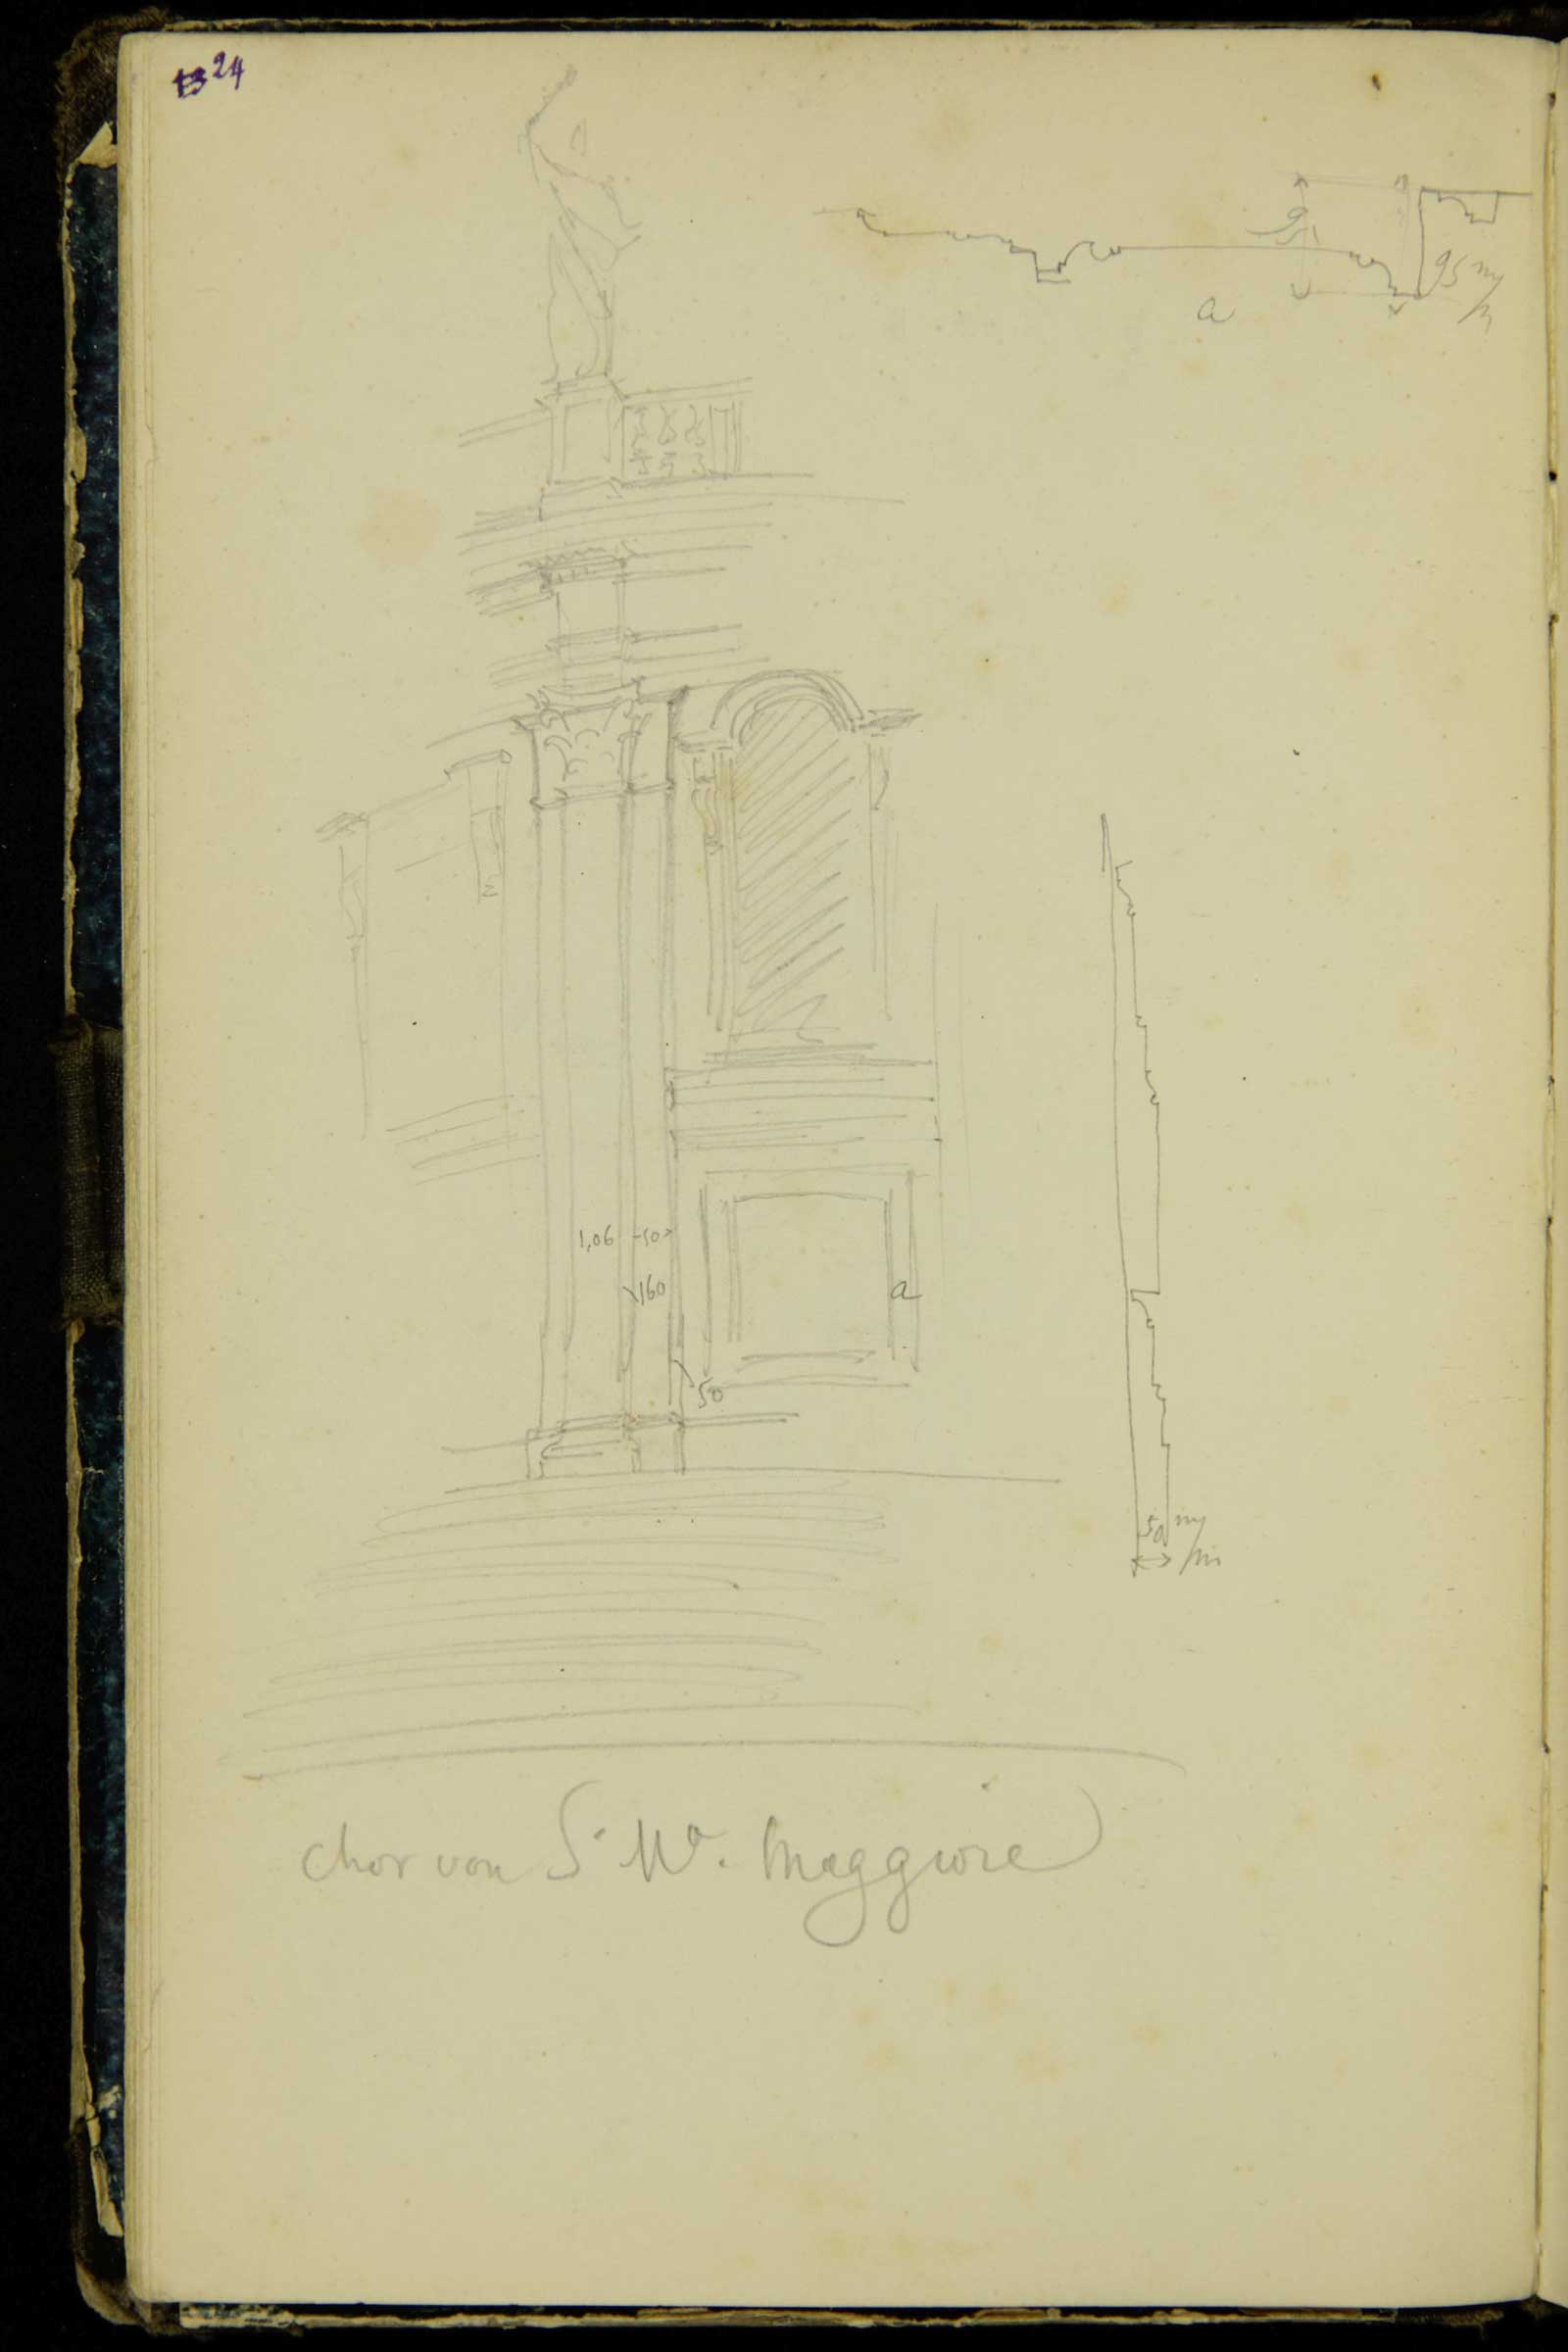 24
a
95 m/m
1,06 50
160
a
50
50 m/m
Chor von S. Mª. Maggiore